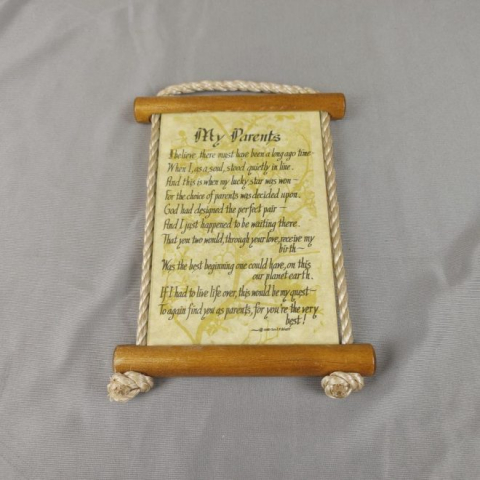 My Parents
I believe there must have been a long ago time
When I, as a soul, stood quietly in line.
And this is when my lucky star was won ~
For the choice of parents was decided upon.
God had designed the perfect pair ~
And I just happened to be waiting there.
That you two would, through your love, receive my
birth ~
Was the best beginning one could have, on this
our planet earth.
If I had to live life over, this would be my quest ~
To again find you as parents, for you're the very
best!